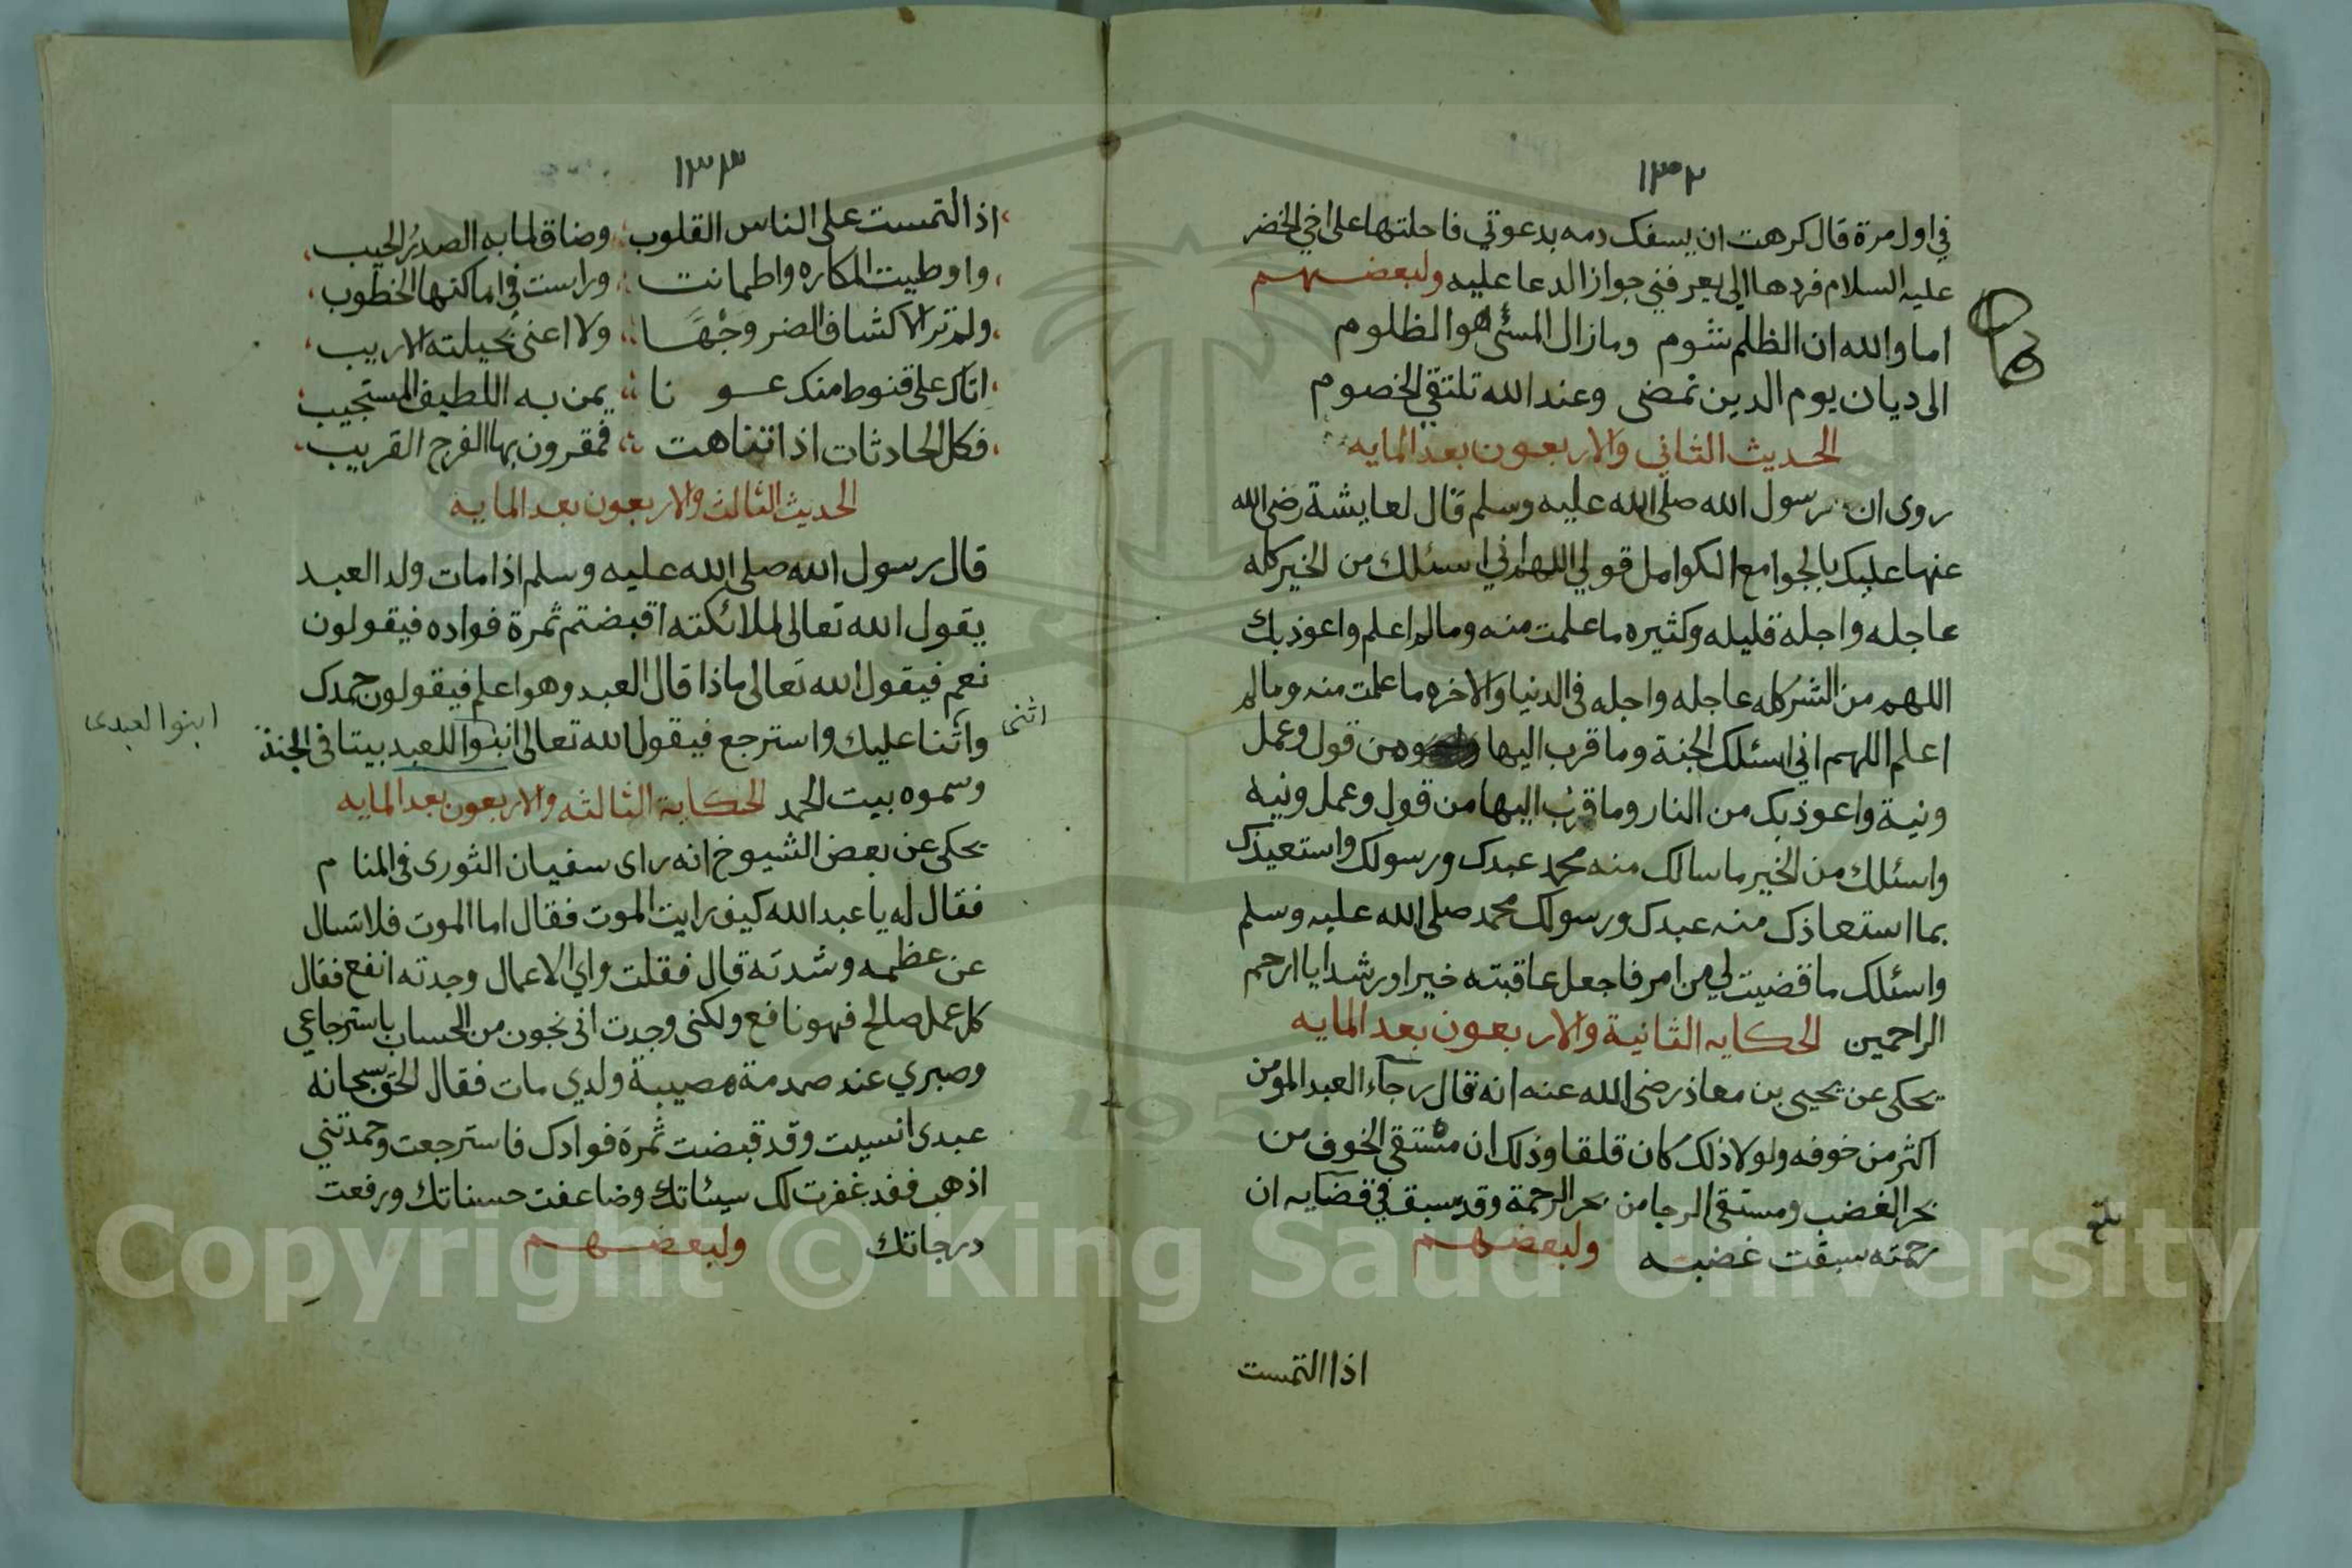 ١٣٢
في اول مرة قال كرهت ان يسفك دمه بدعوتي فاحلتها على اخي الخضر
عليه السلام فردها الي يعرفني جواز الدعا عليه ولبعضهم
اما والله ان الظلم شوم وما زال المسئ هو الظلوم
الى ديان يوم الدين نمضى وعند الله تلتقي الخصوم
الحديث الثاني والاربعون بعد المايه
روى ان رسول الله صلى الله عليه وسلم قال لعايشة رضى الله
عنها عليك بالجوامع الكوامل قولي اللهم اني اسئلك من الخير كله
عاجله واجله قليله وكثيره ما علمت منه وما لم اعلم واعوذ بك
اللهم من الشر كله عاجله واجله في الدنيا والاخره ما علمت منه وما لم
اعلم اللهم اني اسئلك الجنة وما قرب اليها من قول وعمل
ونية واعوذ بك من النار وما قرب اليها من قول وعمل ونيه
واسئلك من الخير ما سالك منه محمد عبدك ورسولك واستعيذك
بما استعاذك منه عبدك ورسولك محمد صلى الله عليه وسلم
واسئلك ما قضيت لي من امر فاجعل عاقبته خيرا ورشدا يا ارحم
الراحمين الحكايه الثانية والاربعون بعد المايه
يحكى عن يحيى بن معاذ رضى الله عنه انه قال رجآء العبد المومن
اكثر من خوفه ولولا ذلك كان قلقا وذلك ان مستقي الخوف من
بحر الغضب ومستقى الرجا من بحر الرحمة وقد سبق في قضآيه ان
رحمته سبقت غضبه ولبعضهم
بلغ
اذا التمست
١٣٣
اذا التمست على الناس القلوب وضاق لما به الصدرُ الحيب
واوطيت المكاره واطمانت وراست في اماكنها الخطوب
ولم تر لاكشاف الضر وجهًا ولا اغنى بحيلته الاريب
اتاك على قنوط منك عونا يمن به اللطيف المستجيب
فكل الحادثات اذا تناهت فمقرون بها الفرج القريب
الحديث الثالث والاربعون بعد المايه
قال رسول الله صلى الله عليه وسلم اذا مات ولد العبد
يقول الله تعالى لملائكته اقبضتم ثمرة فواده فيقولون
نعم فيقول الله تعالى ماذا قال العبد وهو اعلم فيقولون حمدك
واثنا عليك واسترجع فيقول الله تعالى ابنوا للعبد بيتا في الجنة
اثنى
ابنوا لعبدى
وسموه بيت الحمد الحكاية الثالثه والاربعون بعد المايه
يحكى عن بعض الشيوخ انه راى سفيان الثورى في المنام
فقال له يا عبد الله كيف رايت الموت فقال اما الموت فلا تسال
عن عظمه وشدته قال فقلت واي الاعمال وجدته انفع فقال
كل عمل صالح فهو نافع ولكنى وجدت انى نجون من الحساب باسترجاعي
وصبري عند صدمة مصيبة ولدي مات فقال الحق سبحانه
عبدى انسيت وقد قبضت ثمرة فوادك فاسترجعت وحمدتني
اذهب فقد غفرت لك سيئاتك وضاعفت حسناتك ورفعت
درجاتك ولبعضهم
Copyright © King Saud University
195